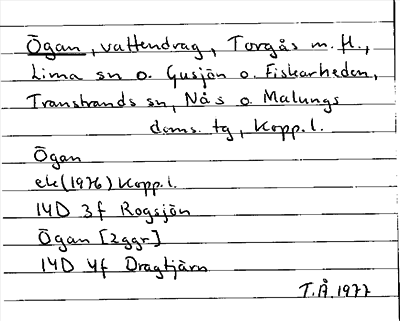 Ögan, vattendrag, Torgås m. fl.,
Lima sn o. Gusjön o. Fiskarheden,
Transtrands sn, Nås o. Malungs
doms. tg, Kopp. l.
Ögan
ek (1976) Kopp. l.
14D 3f Rogsjön
Ögan [2ggr]
14D 4f Dragtjärn
T.Å. 1977